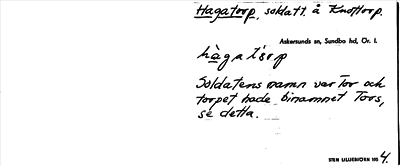 Hagatorp, soldatt. å Knottorp.
Askersunds sn, Sundbo hd, Ör. l.
hàgatórp
Soldatens namn var Tor och
torpet hade binamnet Tors,
se detta.
STEN LILLIEBJÖRN 195 4.